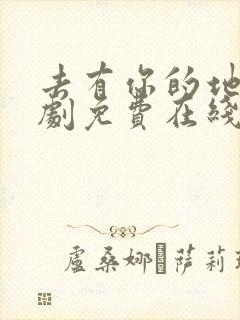 去有你的地
劇免費在綫
盧桑娜·萨莉